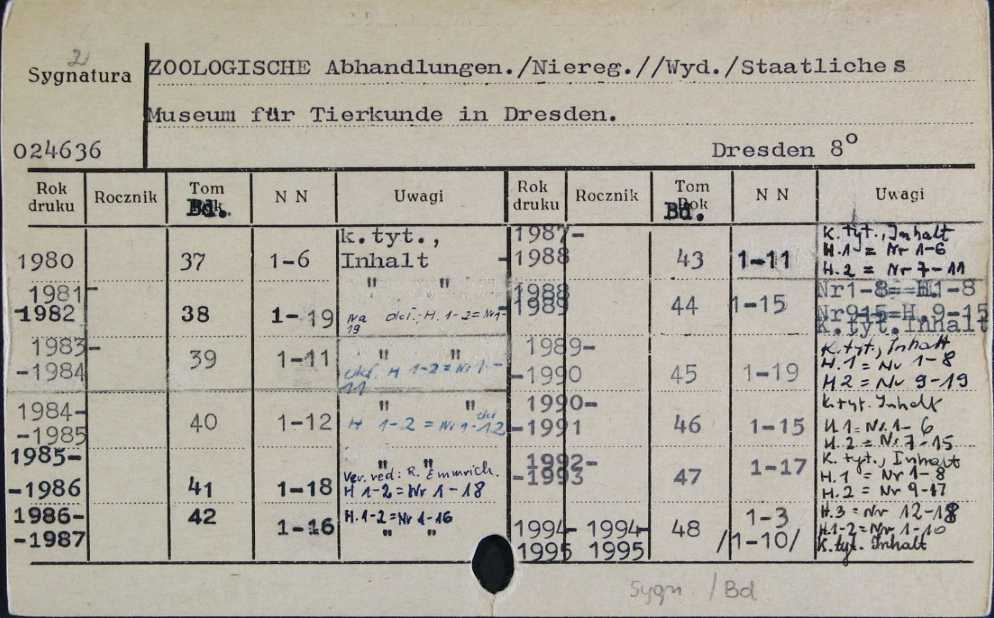 2
Sygnatura ZOOLOGISCHE Abhandlungen./Niereg.//Wyd./Staatliches
Museum für Tierkunde in Dresden.
024636 Dresden 8°
Rok druku Rocznik Tom Bd. N N Uwagi Rok druku Rocznik Tom Rok Bd. N N Uwagi
1980 37 1-6 k.tyt., Inhalt
1981- -1982 38 1-19 " "
Na H. 1-2=Nr 1-19
1983- -1984 39 1-11 " "
H 1-2=Nr 1-11
1984- -1985 40 1-12 " "
H 1-2=Nr 1-12
1985- -1986 41 1-18 " "
Ver. red: R. Emmrich.
H 1-2=Nr 1-18
1986- -1987 42 1-16 H.1-2=Nr 1-16
" "
1987- -1988 43 1-11 K.tyt., Inhalt
H.1 = Nr 1-6
H.2 = Nr 7-11
1988 1989 44 1-15 Nr1-8= H1-8
Nr915=H.9-15
K.tyt.Inhalt
1989- -1990 45 1-19 K.tyt., Inhalt
H.1 = Nr 1-8
H2 = Nr 9-19
1990- -1991 46 1-15 k.tyt. Inhalt
H.1=Nr.1-6
H.2=Nr 7-15
1992- -1993 47 1-17 K. tyt., Inhalt
H.1 = Nr 1-8
H.2 = Nr 9-17
1994- 1995 1994- 1995 48 1-3 /1-10/ H.3=Nr 12-18
H.1-2=Nr 1-10
K.tyt. Inhalt
Sygn /Bd